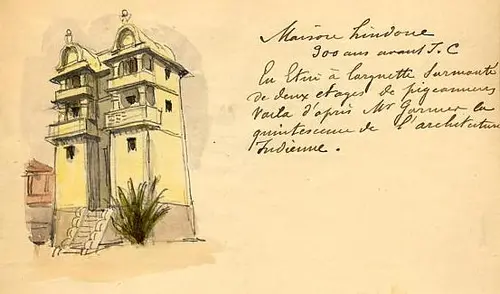 Maison hindoue
300 ans avant J. C
En Etui à lorgnette Surmonté
de deux etages de pigeonniers
Voila d'après Mr Garnier la
quintescence de l'architecture
Indienne.